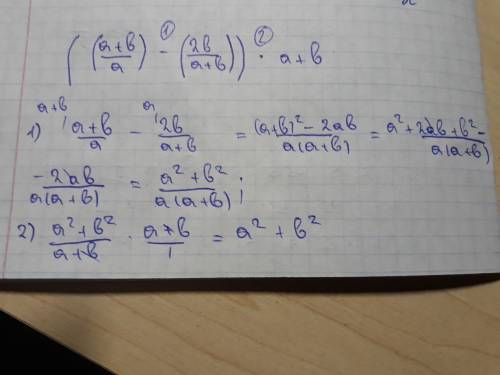 ( ( (a+b)/a ) ①- ( 2b/(a+b) ) ) ②· a+b
1) ^{a+b\} (a+b)/a - ^{a\} 2b/(a+b) = ((a+b)² - 2ab)/(a(a+b)) = (a² + 2ab + b² -)/(a(a+b))
(-2ab)/(a(a+b)) = (a² + b²)/(a(a+b)) ;
2) (a² + b²)/(a+b) · (a+b)/1 = a² + b²